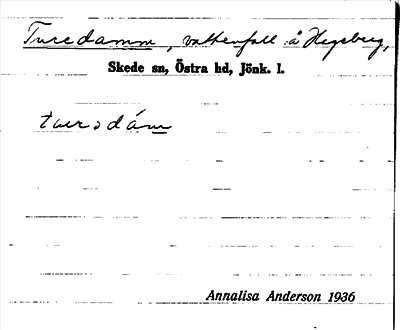 Turedamm, vattenfall å Hegsberg,
Skede sn, Östra hd, Jönk. l.
Annalisa Anderson 1936